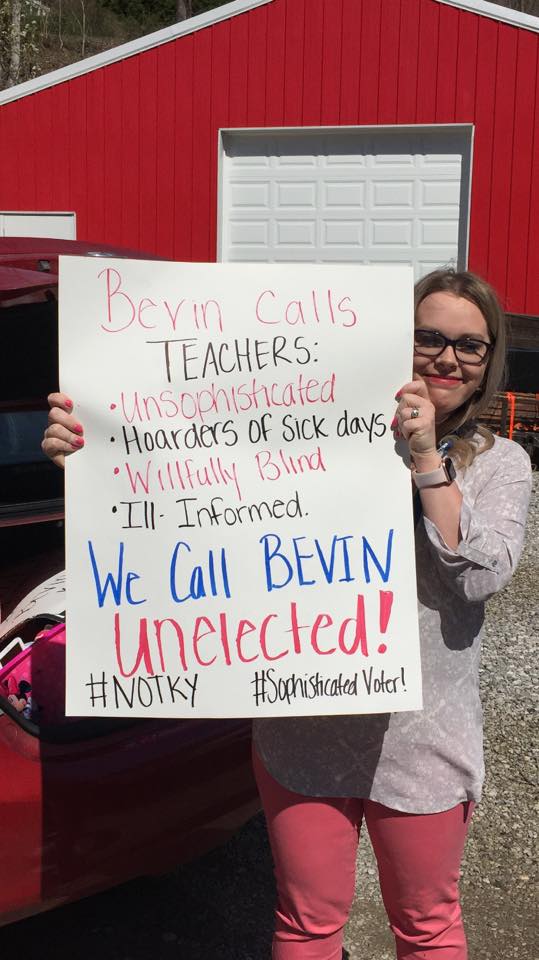 Bevin Calls
TEACHERS:
• Unsophisticated
• Hoarders of Sick days
• Willfully Blind
• Ill- Informed.
We Call BEVIN
Unelected!
#NOTKY #Sophisticated Voter!